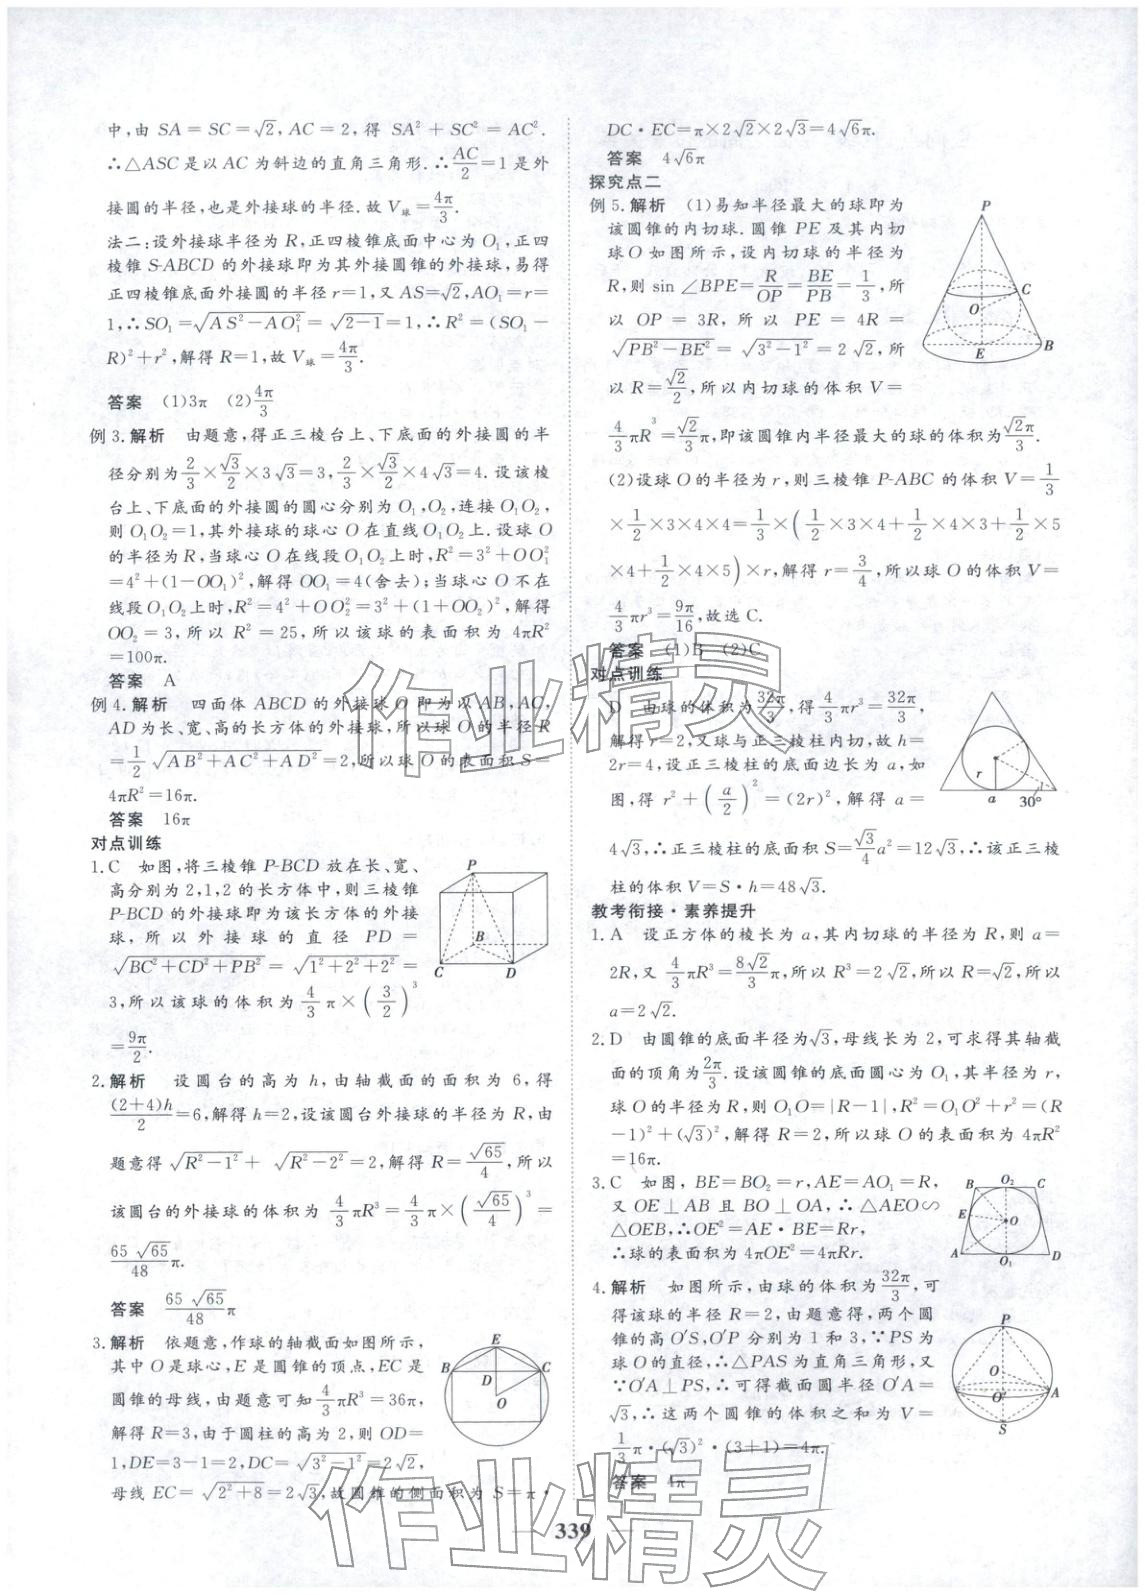 中,由 SA = SC=√2, AC = 2, 得 SA² + SC² = AC².
∴△ASC 是以 AC 为斜边的直角三角形.∴AC/2=1 是外
接圆的半径,也是外接球的半径.故 V球=4π/3.
法二:设外接球半径为 R,正四棱锥底面中心为 O₁,正四
棱锥 S-ABCD 的外接球即为其外接圆锥的外接球,易得
正四棱锥底面外接圆的半径 r=1,又 AS=√2,AO₁=r=
1,∴SO₁=√(AS²-AO₁²)=√(2-1)=1,∴R²=(SO₁-
R)²+r²,解得 R=1,故 V球=4π/3.
答案 (1)3π (2)4π/3
例 3.解析 由题意,得正三棱台上、下底面的外接圆的半
径分别为2/3×√3/2×3√3=3,2/3×√3/2×4√3=4.设该棱
台上、下底面的外接圆的圆心分别为 O₁,O₂,连接 O₁O₂,
则 O₁O₂=1,其外接球的球心 O 在直线 O₁O₂上.设球 O
的半径为 R,当球心 O 在线段 O₁O₂上时,R²=3²+OO₁²
=4²+(1-OO₁)²,解得 OO₁=4(舍去);当球心 O 不在
线段 O₁O₂上时,R²=4²+OO₂²=3²+(1+OO₂)²,解得
OO₂=3,所以 R²=25,所以该球的表面积为 4πR²
=100π.
答案 A
例 4.解析 四面体 ABCD 的外接球 O 即为以 AB,AC,
AD为长、宽、高的长方体的外接球,所以球 O 的半径 R
=1/2√(AB²+AC²+AD²)=2,所以球 O 的表面积 S=
4πR²=16π.
答案 16π
对点训练
1.C 如图,将三棱锥 P-BCD 放在长、宽、
高分别为2,1,2的长方体中,则三棱锥
P-BCD 的外接球即为该长方体的外接
球,所以外接球的直径 PD=
√(BC²+CD²+PB²)=√(1²+2²+2²)=
3,所以该球的体积为4/3π×(3/2)³
=9π/2.
P
B
C D
2.解析 设圆台的高为 h,由轴截面的面积为 6,得
(2+4)h/2=6,解得h=2,设该圆台外接球的半径为 R,由
题意得√(R²-1²)+√(R²-2²)=2,解得 R=√65/4,所以
该圆台的外接球的体积为 4/3πR³=4/3π×(√65/4)³=
65√65/48π.
答案 65√65/48π
3.解析 依题意,作球的轴截面如图所示,
其中 O 是球心,E 是圆锥的顶点,EC 是
圆锥的母线,由题意可知4/3πR³=36π,
解得 R=3,由于圆柱的高为 2,则 OD=
1,DE=3-1=2,DC=√(3²-1²)=2√2,
母线 EC=√(2²+8)=2√3,故圆锥的侧面积为 S=π·
E
B C
D
O
DC·EC=π×2√2×2√3=4√6π.
答案 4√6π
探究点二
例 5.解析 (1)易知半径最大的球即为
该圆锥的内切球.圆锥 PE 及其内切
球 O 如图所示,设内切球的半径为
R,则 sin ∠BPE=R/OP=BE/PB=1/3,所
以 OP=3R,所以 PE=4R=
√(PB²-BE²)=√(3²-1²)=2√2,所
以 R=√2/2,所以内切球的体积 V=
4/3πR³=√2/3π,即该圆锥内半径最大的球的体积为√2π/3.
P
C
O
E B
(2)设球 O 的半径为 r,则三棱锥 P-ABC 的体积 V=1/3
×1/2×3×4×4=1/3×(1/2×3×4+1/2×4×3+1/2×5
×4+1/2×4×5)×r,解得 r=3/4,所以球 O 的体积 V=
4/3πr³=9π/16,故选 C.
答案 (1)B (2)C
对点训练
D 由球的体积为32π/3,得4/3πr³=32π/3,
解得 r=2,又球与正三棱柱内切,故 h=
2r=4,设正三棱柱的底面边长为 a,如
图,得 r²+(a/2)²=(2r)²,解得 a=
4√3,∴正三棱柱的底面积 S=√3/4a²=12√3,∴该正三棱
柱的体积 V=S·h=48√3.
r
a 30°
教考衔接·素养提升
1.A 设正方体的棱长为 a,其内切球的半径为 R,则 a=
2R,又 4/3πR³=8√2/3π,所以 R³=2√2,所以 R=√2,所以
a=2√2.
2.D 由圆锥的底面半径为√3,母线长为 2,可求得其轴截
面的顶角为2π/3.设该圆锥的底面圆心为 O₁,其半径为 r,
球 O 的半径为 R,则 O₁O=|R-1|,R²=O₁O²+r²=(R
-1)²+(√3)²,解得 R=2,所以球 O 的表面积为 4πR²
=16π.
3.C 如图,BE=BO₂=r,AE=AO₁=R,
又 OE⊥AB 且 BO⊥OA,∴△AEO∽
△OEB,∴OE²=AE·BE=Rr,
∴球的表面积为 4πOE²=4πRr.
B O₂ C
E O
A O₁ D
4.解析 如图所示,由球的体积为32π/3,可
得该球的半径 R=2,由题意得,两个圆
锥的高 O′S,O′P 分别为 1 和 3,∵PS 为
球 O 的直径,∴△PAS 为直角三角形,又
∵O′A⊥PS,∴可得截面圆半径 O′A=
√3,∴这两个圆锥的体积之和为 V=
1/3π·(√3)²·(3+1)=4π.
答案 4π
P
O
O′ A
S
339
作业精灵
作业精灵